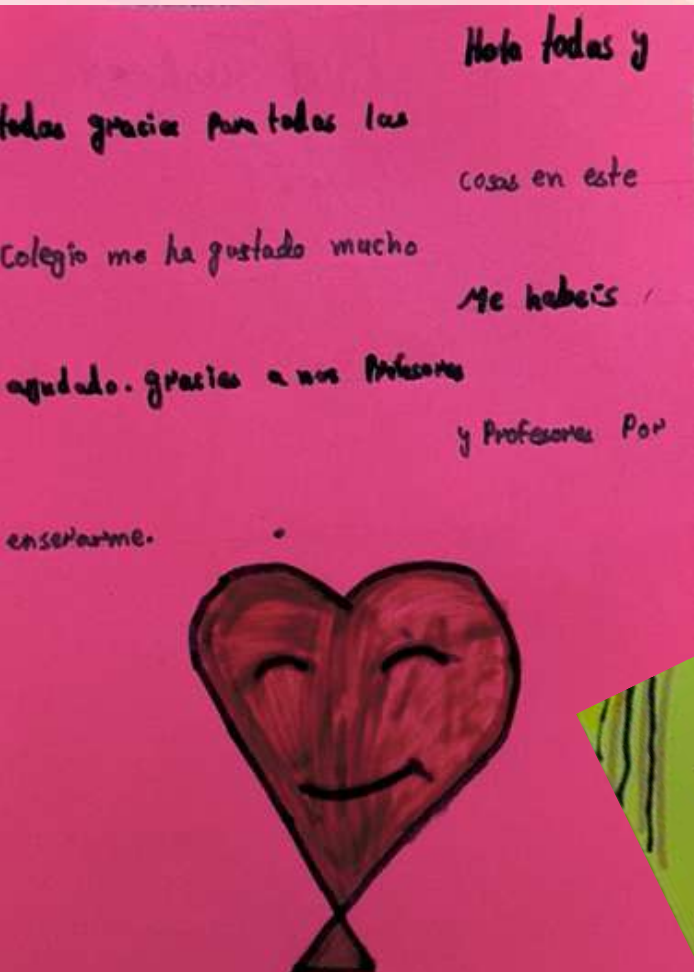 Hola todas y
todas gracias para todas las
cosas en este
colegio me ha gustado mucho
Me habeis
ayudado. gracias a mos Profesores
y Profesores Por
enseñarme.